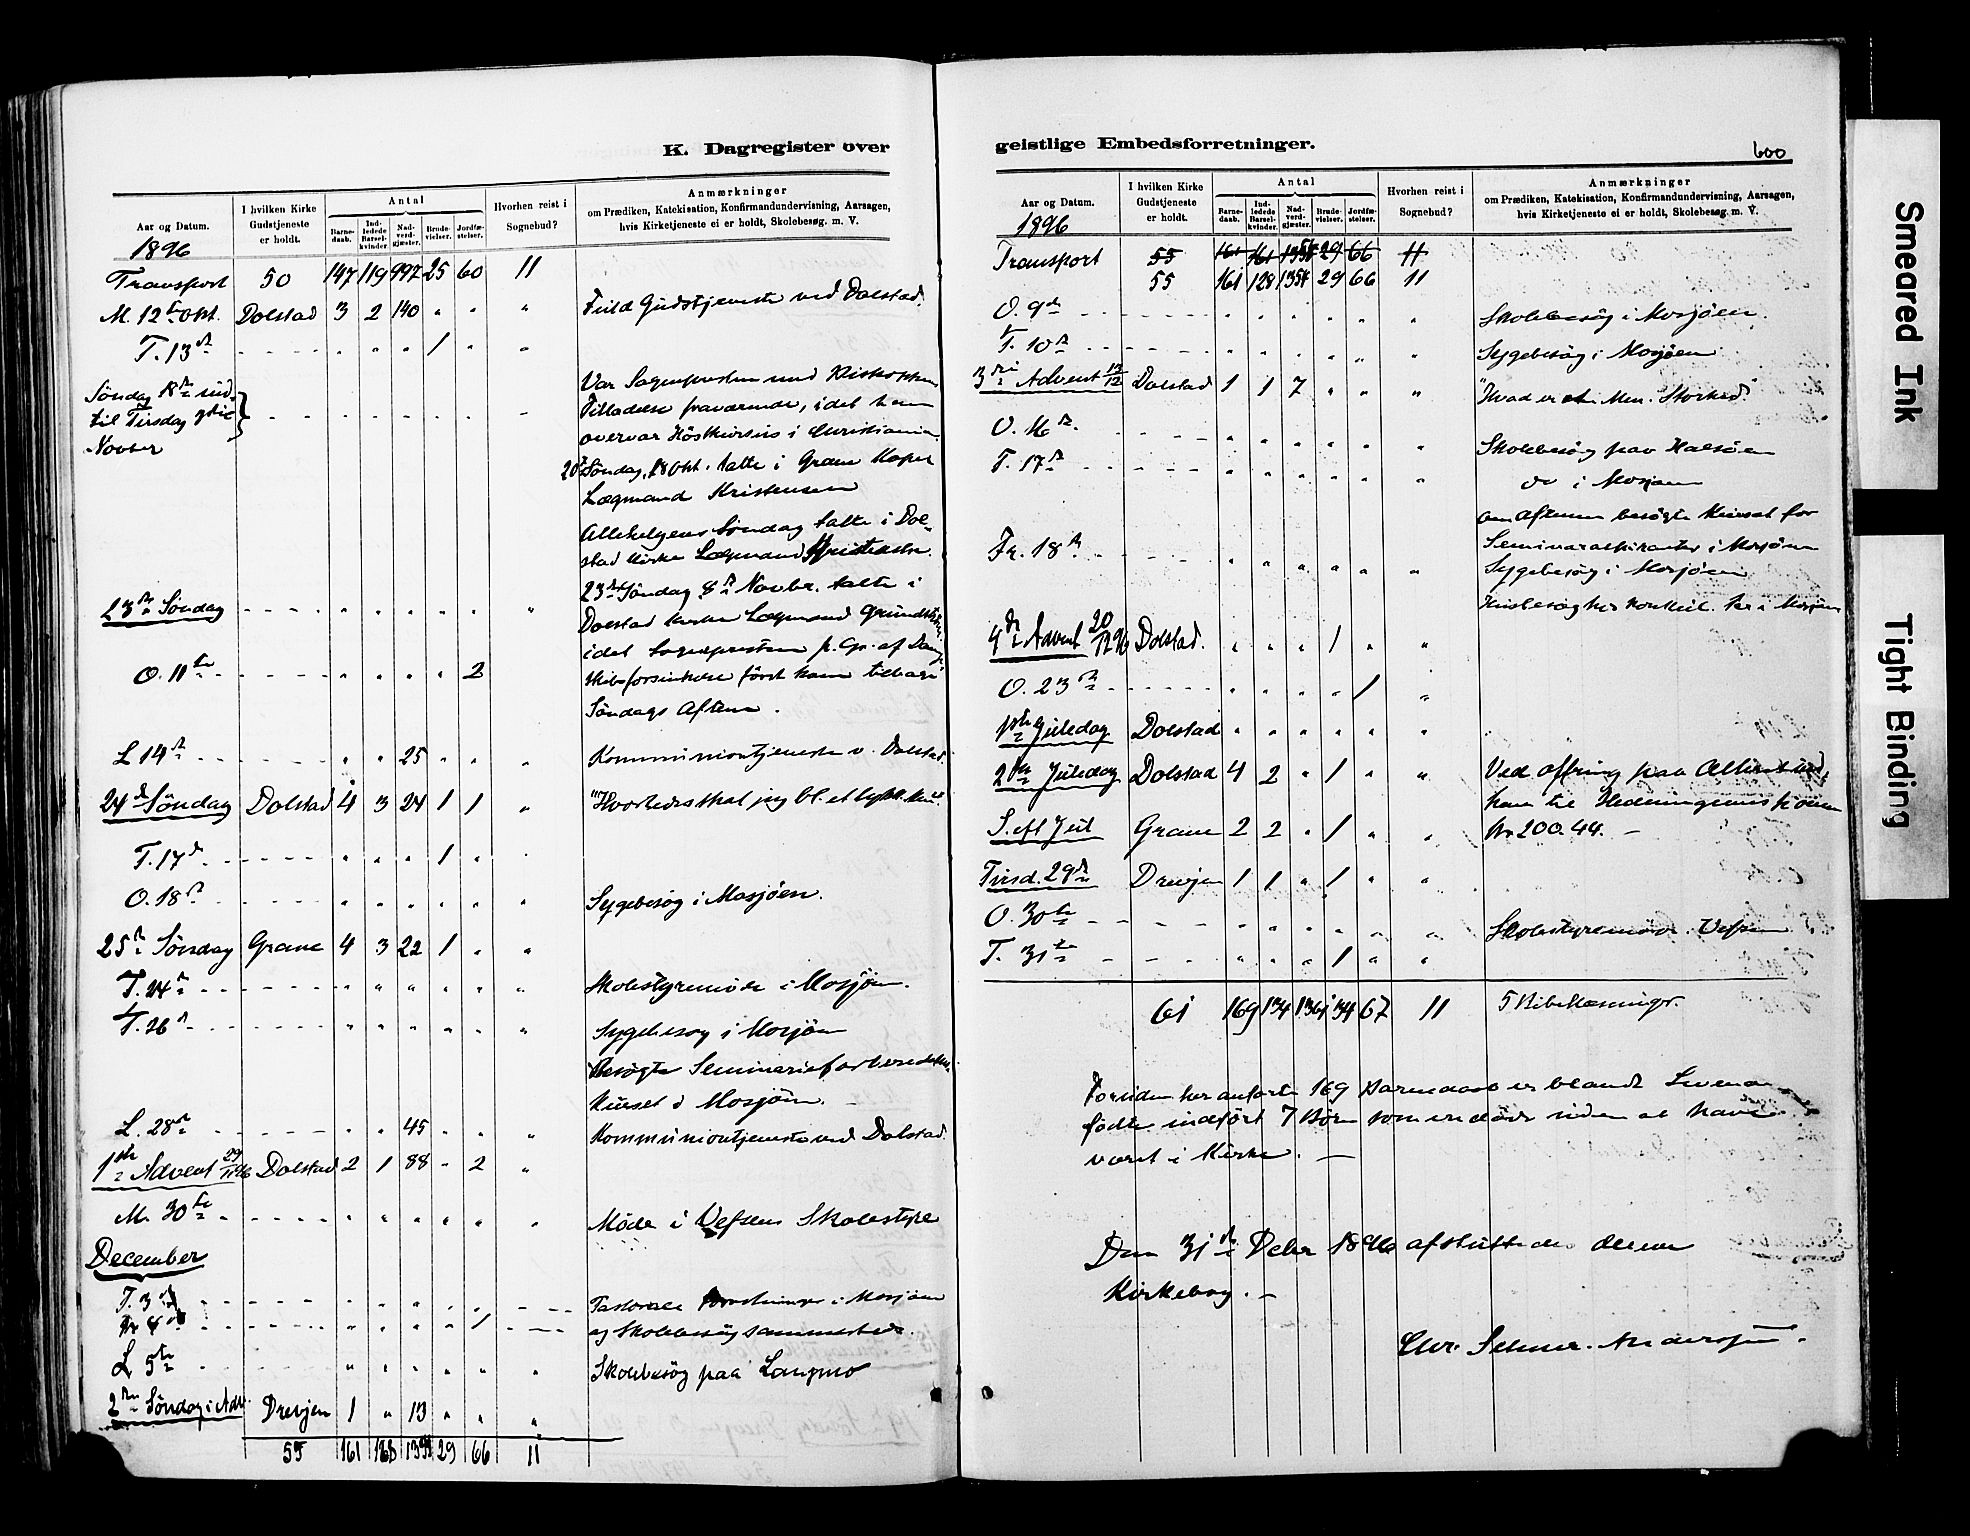 K. Dagregister over
Aar og Datum.
1896
I hvilken Kirke Gudstjeneste er holdt.
Antal
Barnedaab.
Indledede Barselkvinder.
Nadverdgjæster.
Brudevielser.
Jordfæstelser.
Hvorhen reist i Sognebud?
Anmærkninger
om Prædiken, Katekisation, Konfirmandundervisning, Aarsagen,
hvis Kirketjeneste ei er holdt, Skolebesøg. m. V.
Transport 50 147 119 997 25 60 11
M. 12te Okt. Dolstad 3 2 140 " " " Fuld Gudstjeneste ved Dolstad.
T. 13de " " " 1 " "
Søndag 18de ind
til Tirsdag
Novber
Var Sognepresten med Biskoppens
Tilladelse fraværende, idet han
overvar Höstkursus i Christiania.
20de Søndag, 18 Okt. talte i Grane Kapel
Lægmand Kristensen
Allehelgens Søndag talte i Dol-
stad Kirke Lægmand Kristensen.
23de Søndag 8de Novbr. talte i
23de Søndag " " " " " " Dolstad Kirke Lægmand
idet Sognepresten p. Gr. af Damp-
O. 11te " " " " 2 skibsforsinkelse först kom tilbage
Söndags Aften.
L 14de " " 25 " " " Kommuniontjeneste v. Dolstad.
24de Søndag Dolstad 4 3 24 1 1 " "Hvorledes skal jeg bl. et
T. 17de " " " 1 " "
O. 18de " " " " " " Sygebesög i Mosjöen.
25de Søndag Grane 4 3 22 1 " "
T. 24de " " " " " " Skolestyremöde i Mosjöen.
T. 26de " " " " " " Sygebesög i Mosjöen
Besögte Seminarieforberedelses
Kurset i Mosjöen.
L. 28de " " 45 " " " Kommuniontjeneste ved Dolstad.
1ste Advent 29/11 96 Dolstad 2 1 88 " 2 "
M. 30te " " " " " " Möde i Vefsens Skolestyre
December
T. 3de " " " " " Pastorale Forretninger i Mosjöen
Fr 4de " " " " 1 og Skolebesög sammesteds.
L 5te " " " " " " Skolebesög paa Langmo
2den Søndag i Adv. Drevjen 1 " 13 " " "
55 161 128 1354 29 66 11
geistlige Embedsforretninger.
600
Aar og Datum.
1896
I hvilken Kirke Gudstjeneste er holdt.
Antal
Barnedaab.
Indledede Barselkvinder.
Nadverdgjæster.
Brudevielser.
Jordfæstelser.
Hvorhen reist i Sognebud?
Anmærkninger
om Prædiken, Katekisation, Konfirmandundervisning, Aarsagen,
hvis Kirketjeneste ei er holdt, Skolebesøg. m. V.
Transport 55 161 161 1354 29 66 11
55 161 128 1354 29 66 11
O. 9de " " " " " " Skolebesög i Mosjöen.
T. 10de " " " " " " Sygebesög i Mosjöen
3die Advent 13/12 Dolstad 1 1 7 " " " "Hvad er et Men. Storhed"
O. 16de " " " " " " Skolebesög paa Halsöen
T. 17de " " " " " " do i Mosjöen
om Aftenen besögte Kurset for
Fr. 18de " " " " " " Seminarieaspiranter i Mosjöen
Sygebesög i Mosjöen
4de Advent 20/12 96 Dolstad. " " " 1 " "
O. 23de " " " " 1 "
1ste Juledag Dolstad " " " " " "
2den Juledag Dolstad 4 2 " 1 " " Ved offring paa Alteret ind-
kom til Hedningemissionen
S. eft Jul Grane 2 2 " 1 " " Kr 200.44.
Tirsd. 29de Drevjen 1 1 " 1 " "
O. 30te " " " " " " Skolestyremöde Vefsen
T. 31te " " " 1 " "
61 169 134 1361 34 67 11 5 Bibellæsninger.
Foruden her anförte 169 Barnedaab er blandt Levende
födte indfört 7 Börn som er döde uden at have
været i Kirke.
Den 31te Decbr 1896 afsluttedes denne
Kirkebog.
Chr. Selmer-Anderssen.
Smeared Ink
Tight Binding